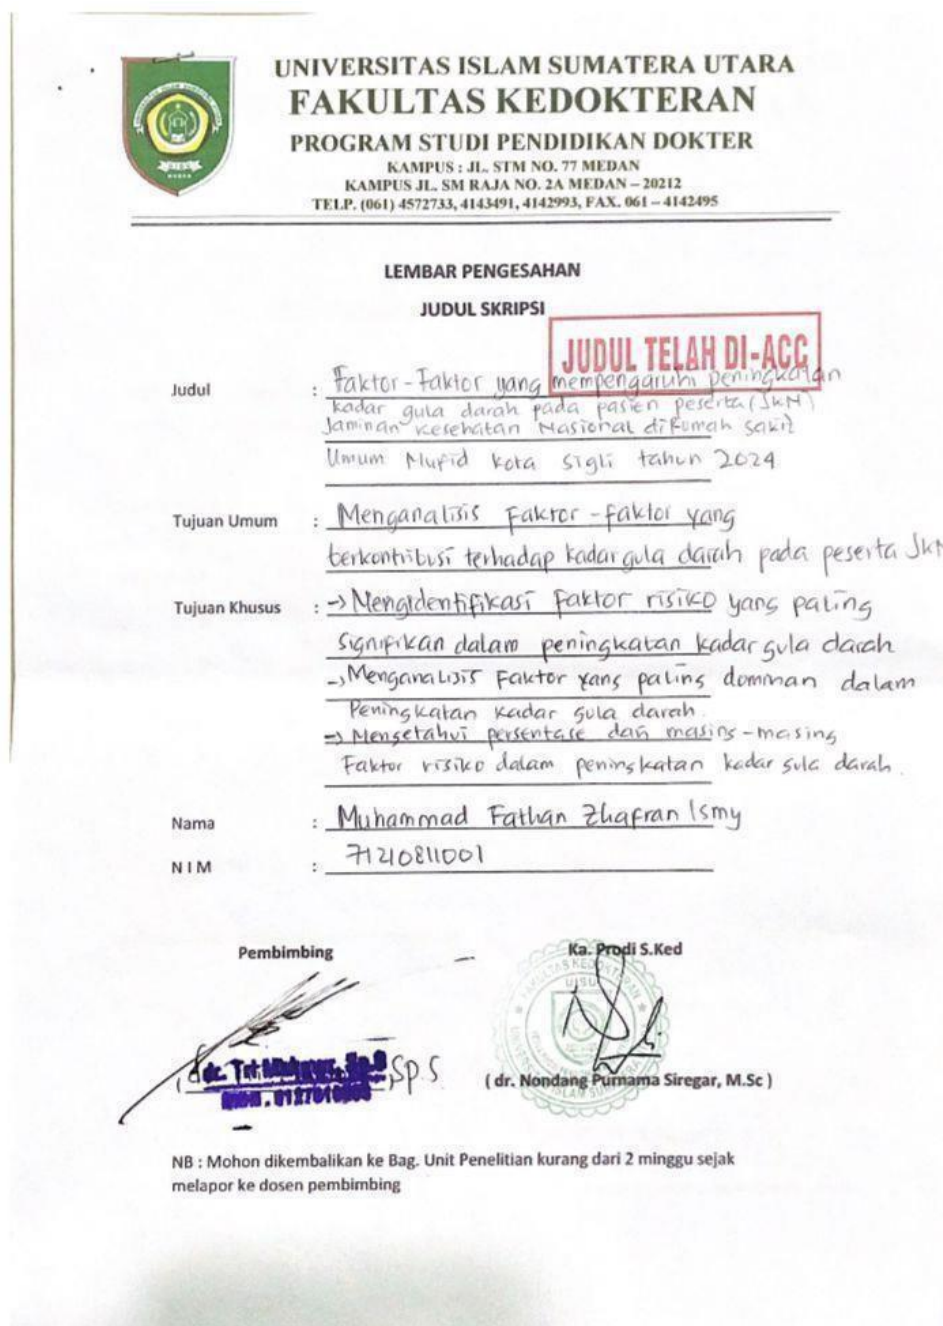 UNIVERSITAS ISLAM SUMATERA UTARA
FAKULTAS KEDOKTERAN
PROGRAM STUDI PENDIDIKAN DOKTER
KAMPUS : JL. STM NO. 77 MEDAN
KAMPUS JL. SM RAJA NO. 2A MEDAN – 20212
TELP. (061) 4572733, 4143491, 4142993, FAX. 061 – 4142495
LEMBAR PENGESAHAN
JUDUL SKRIPSI
JUDUL TELAH DI-ACC
Judul : Faktor-Faktor yang mempengaruhi peningkatan
kadar gula darah pada pasien peserta (JKN)
Jaminan Kesehatan Nasional di Rumah Sakit
Umum Mufid Kota Sigli tahun 2024
Tujuan Umum : Menganalisis Faktor-faktor yang
berkontribusi terhadap kadar gula darah pada peserta JKN
Tujuan Khusus : -> Mengidentifikasi faktor risiko yang paling
signifikan dalam peningkatan kadar gula darah
-> Menganalisis Faktor yang paling dominan dalam
Peningkatan kadar gula darah.
-> Mengetahui persentase dari masing-masing
Faktor risiko dalam peningkatan kadar gula darah.
Nama : Muhammad Fathan Zhafran Ismy
NIM : 71210811001
Pembimbing
Ka. Prodi S.Ked
UISU
dr. Tri Sp.S
( dr. Nondang Purnama Siregar, M.Sc )
NB : Mohon dikembalikan ke Bag. Unit Penelitian kurang dari 2 minggu sejak
melapor ke dosen pembimbing